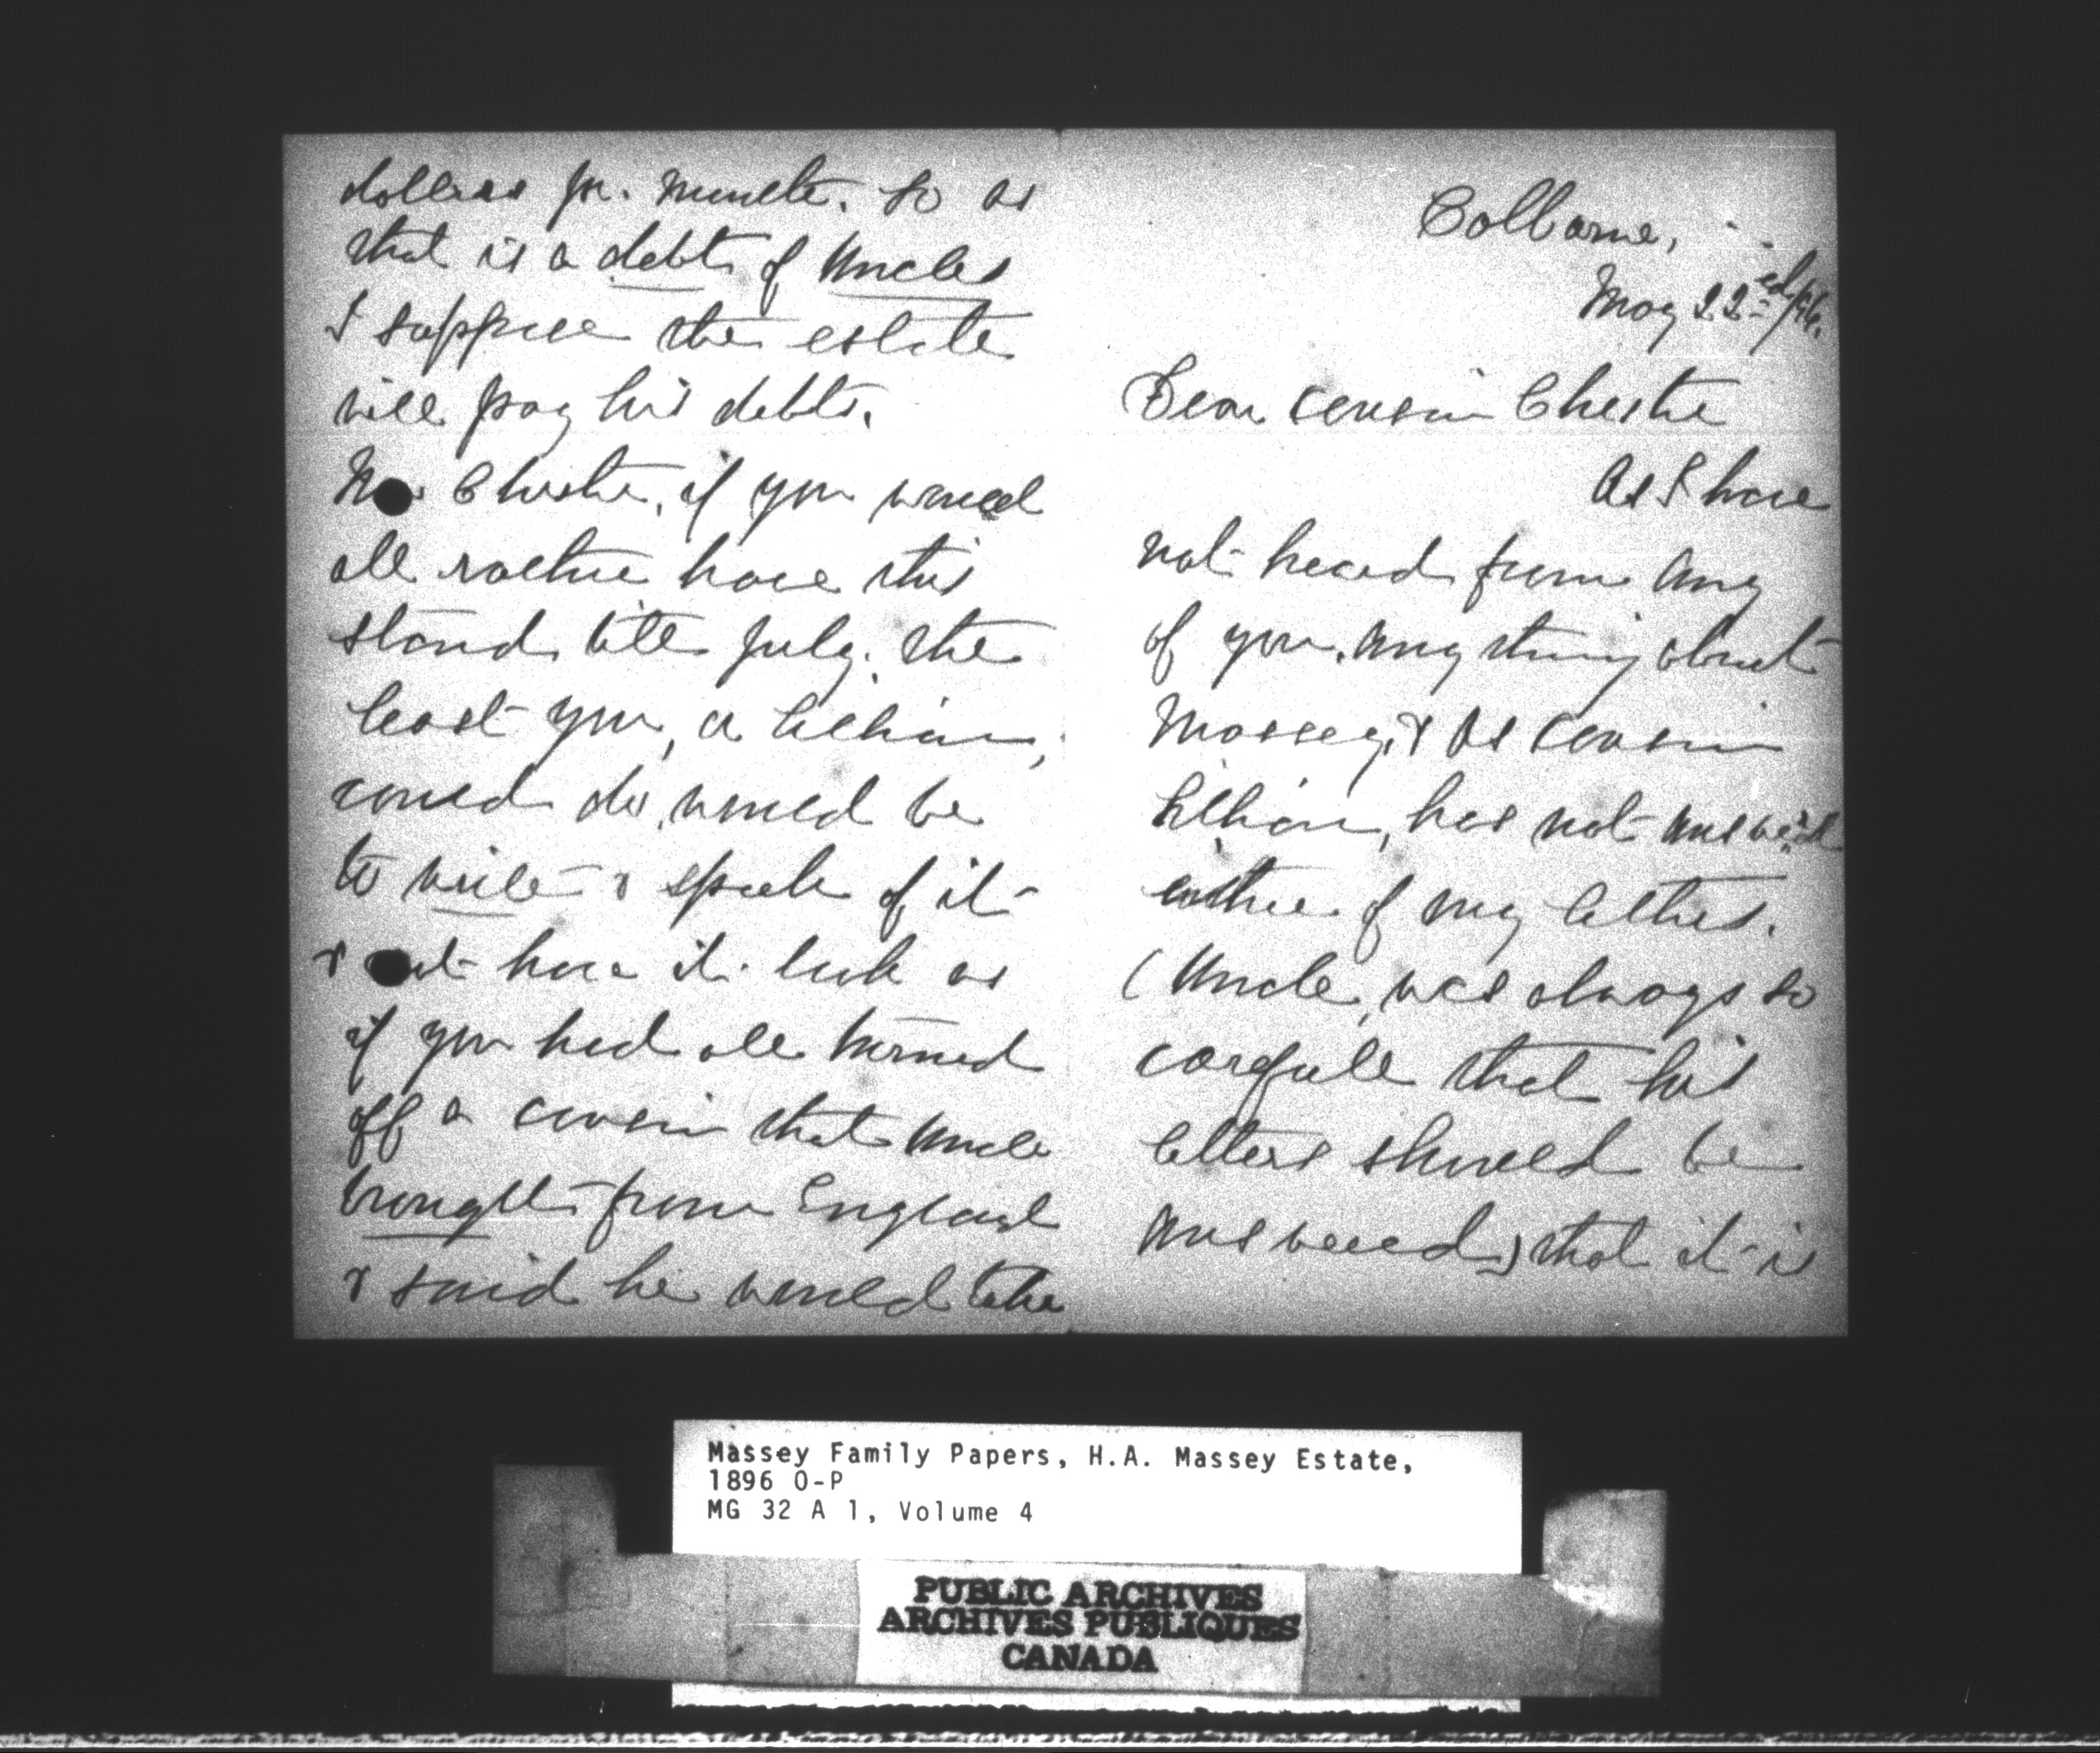 dollars pr. month. so as
that is a debt of Uncles
I suppose the estate
will pay his debts.
Chester, if you would
all rather have this
stand till July. the
least you, or Lillian,
could do, would be
to write & speak of it
& not have it look as
if you had all turned
off a cousin that Uncle
brought from England
& said he would take
Colborne,
May 22ed/96.
Dear Cousin Chester
As I have
not heard from any
of you, any thing about
Massey, & as Cousin
Lillian, has not answered
either of my letters.
(Uncle, was always so
carefull that his
letters should be
answered,) that it is
Massey Family Papers, H.A. Massey Estate,
1896 O-P
MG 32 A 1, Volume 4
PUBLIC ARCHIVES
ARCHIVES PUBLIQUES
CANADA